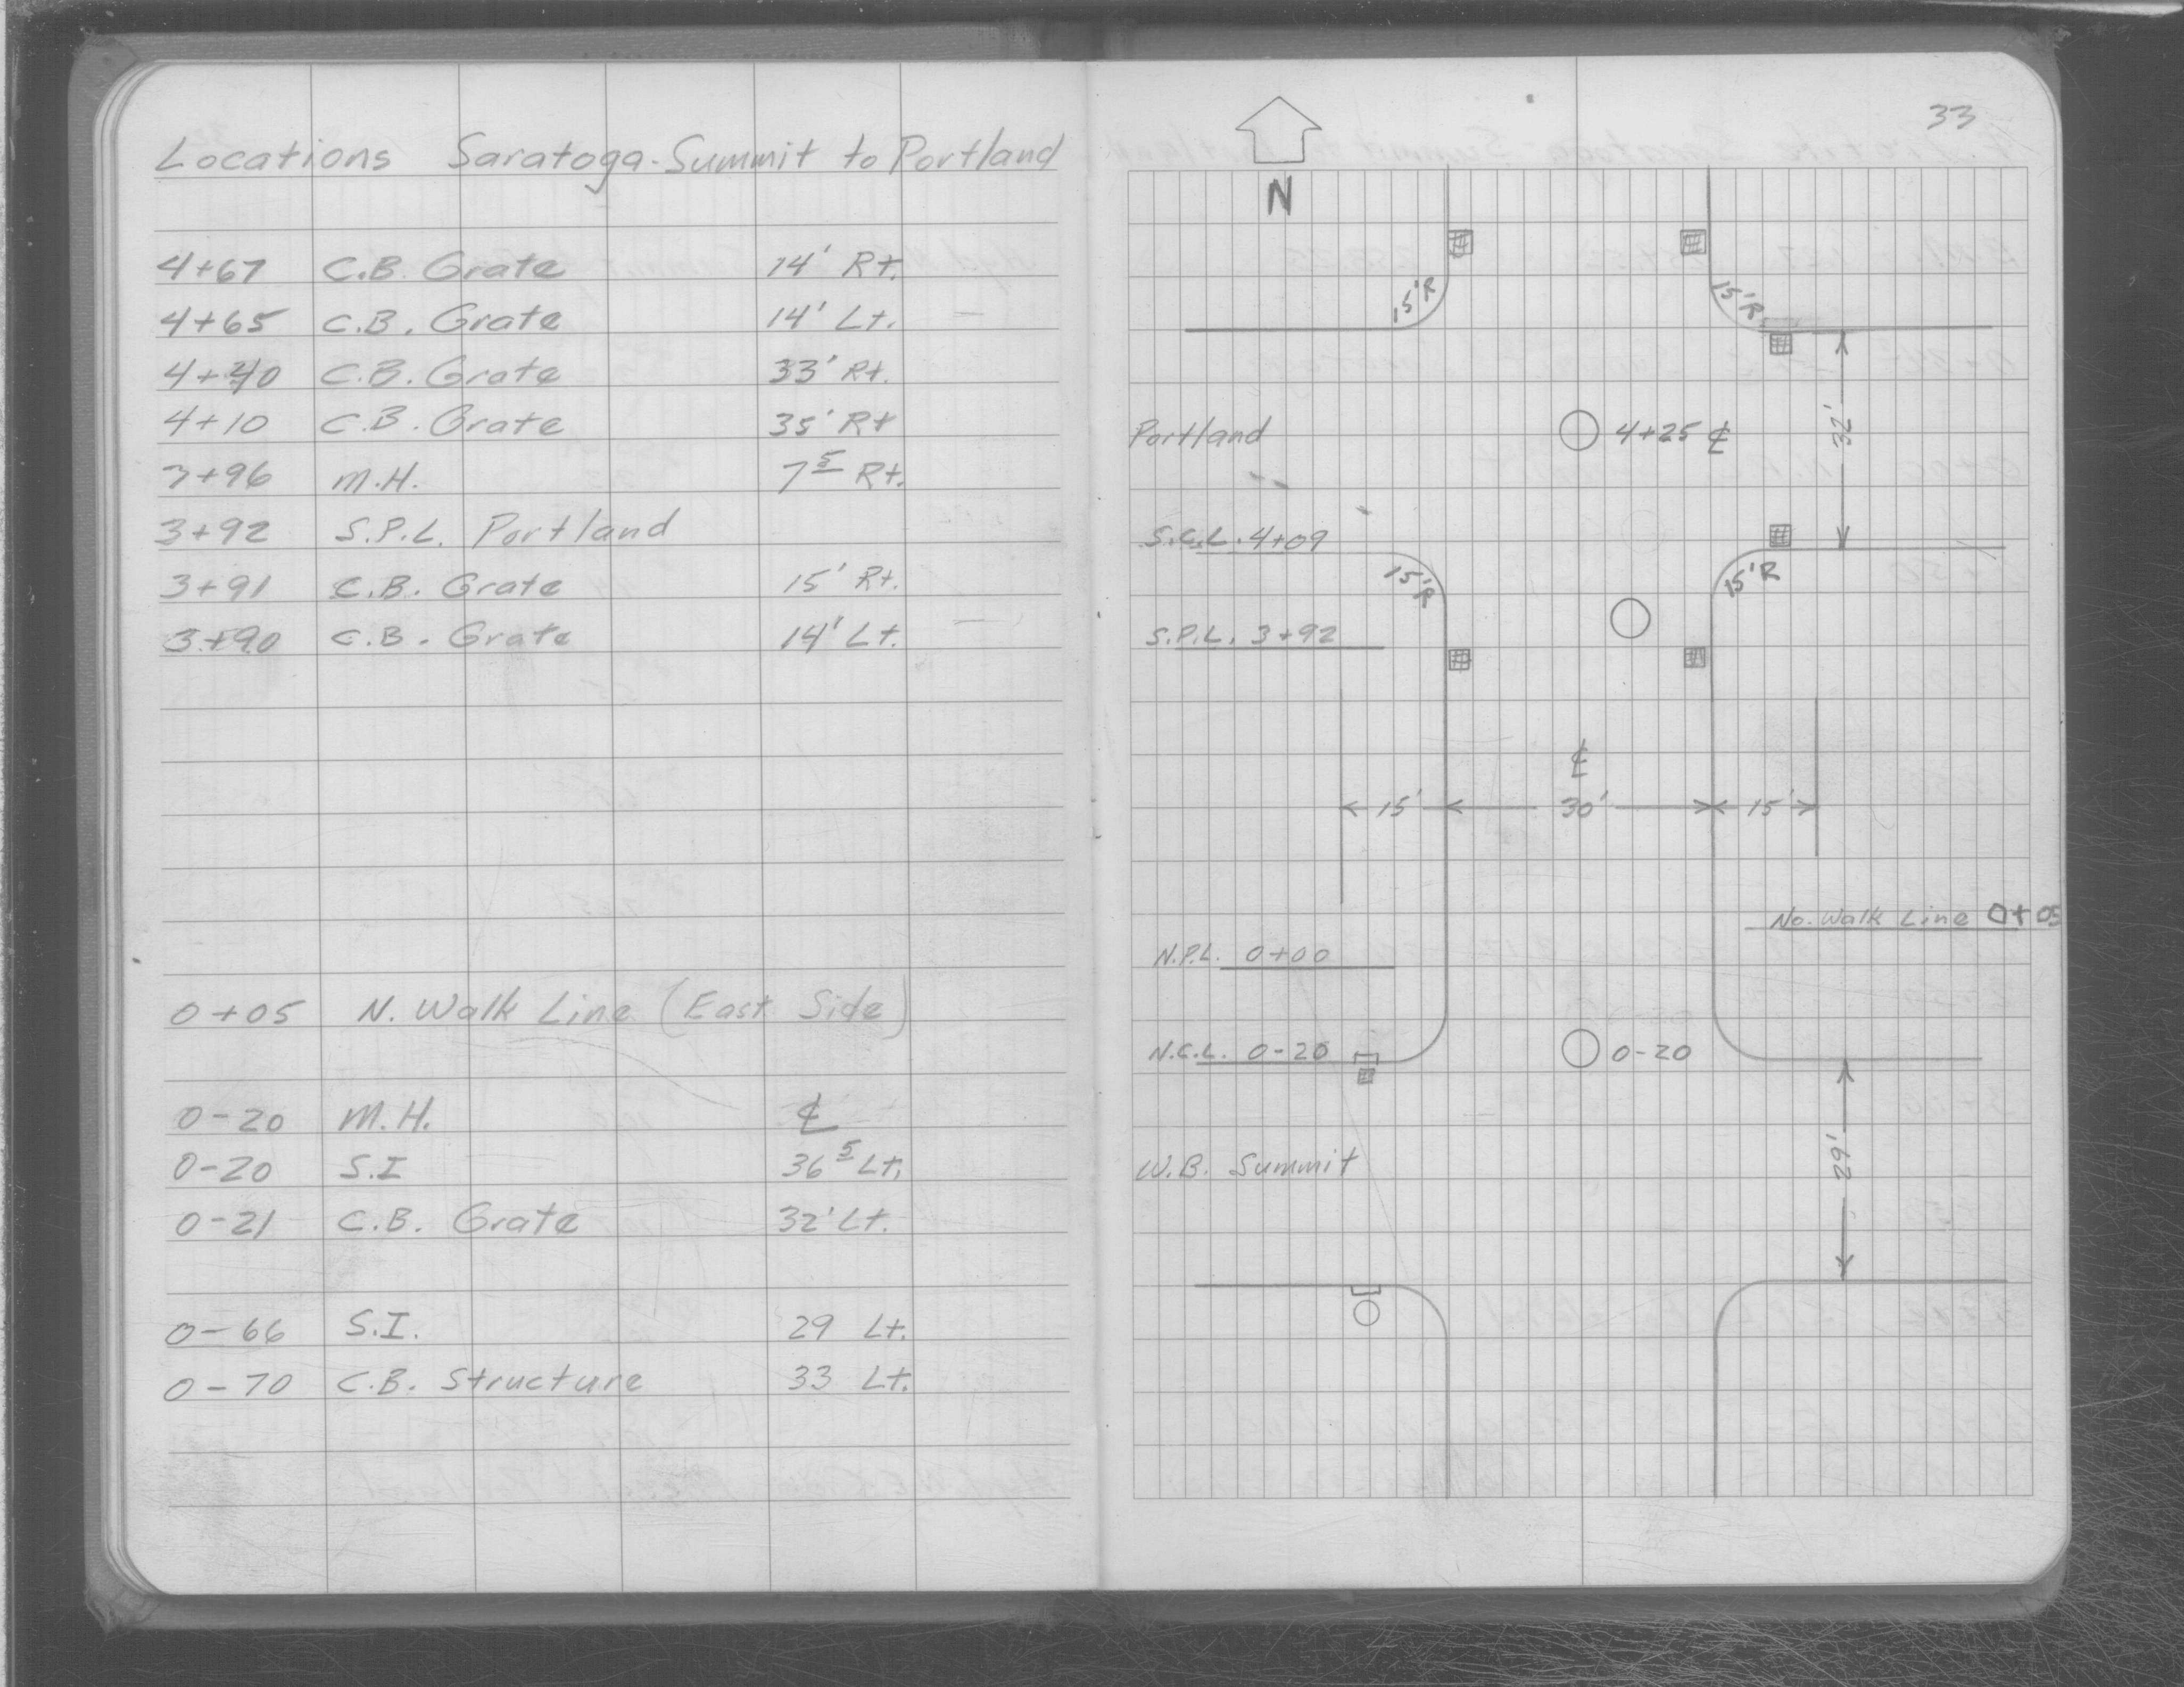 Locations Saratoga-Summit to Portland
4+67 C.B. Grate 14' Rt.
4+65 C.B. Grate 14' Lt.
4+40 C.B. Grate 33' Rt.
4+10 C.B. Grate 35' Rt
3+96 M.H. 7⁵ Rt.
3+92 S.P.L. Portland
3+91 C.B. Grate 15' Rt.
3+90 C.B. Grate 14' Lt.
0+05 N. Walk Line (East Side)
0-20 M.H. ℄
0-20 S.I 36⁵ Lt.
0-21 C.B. Grate 32' Lt.
0-66 S.I. 29 Lt.
0-70 C.B. Structure 33 Lt.
33
N
15'R 15'R
Portland 4+25 ℄ 32'
S.C.L. 4+09
15'R 15'R
S.P.L. 3+92
℄
15' 30' 15'
No. Walk Line 0+05
N.P.L. 0+00
N.C.L. 0-20 0-20
W.B. Summit 29'